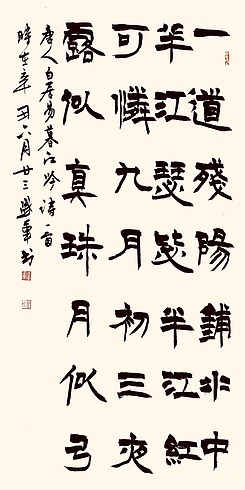 一道殘陽鋪水中
半江瑟瑟半江紅
可憐九月初三夜
露似真珠月似弓
唐人白居易暮江吟詩一首
時在辛丑六月廿三